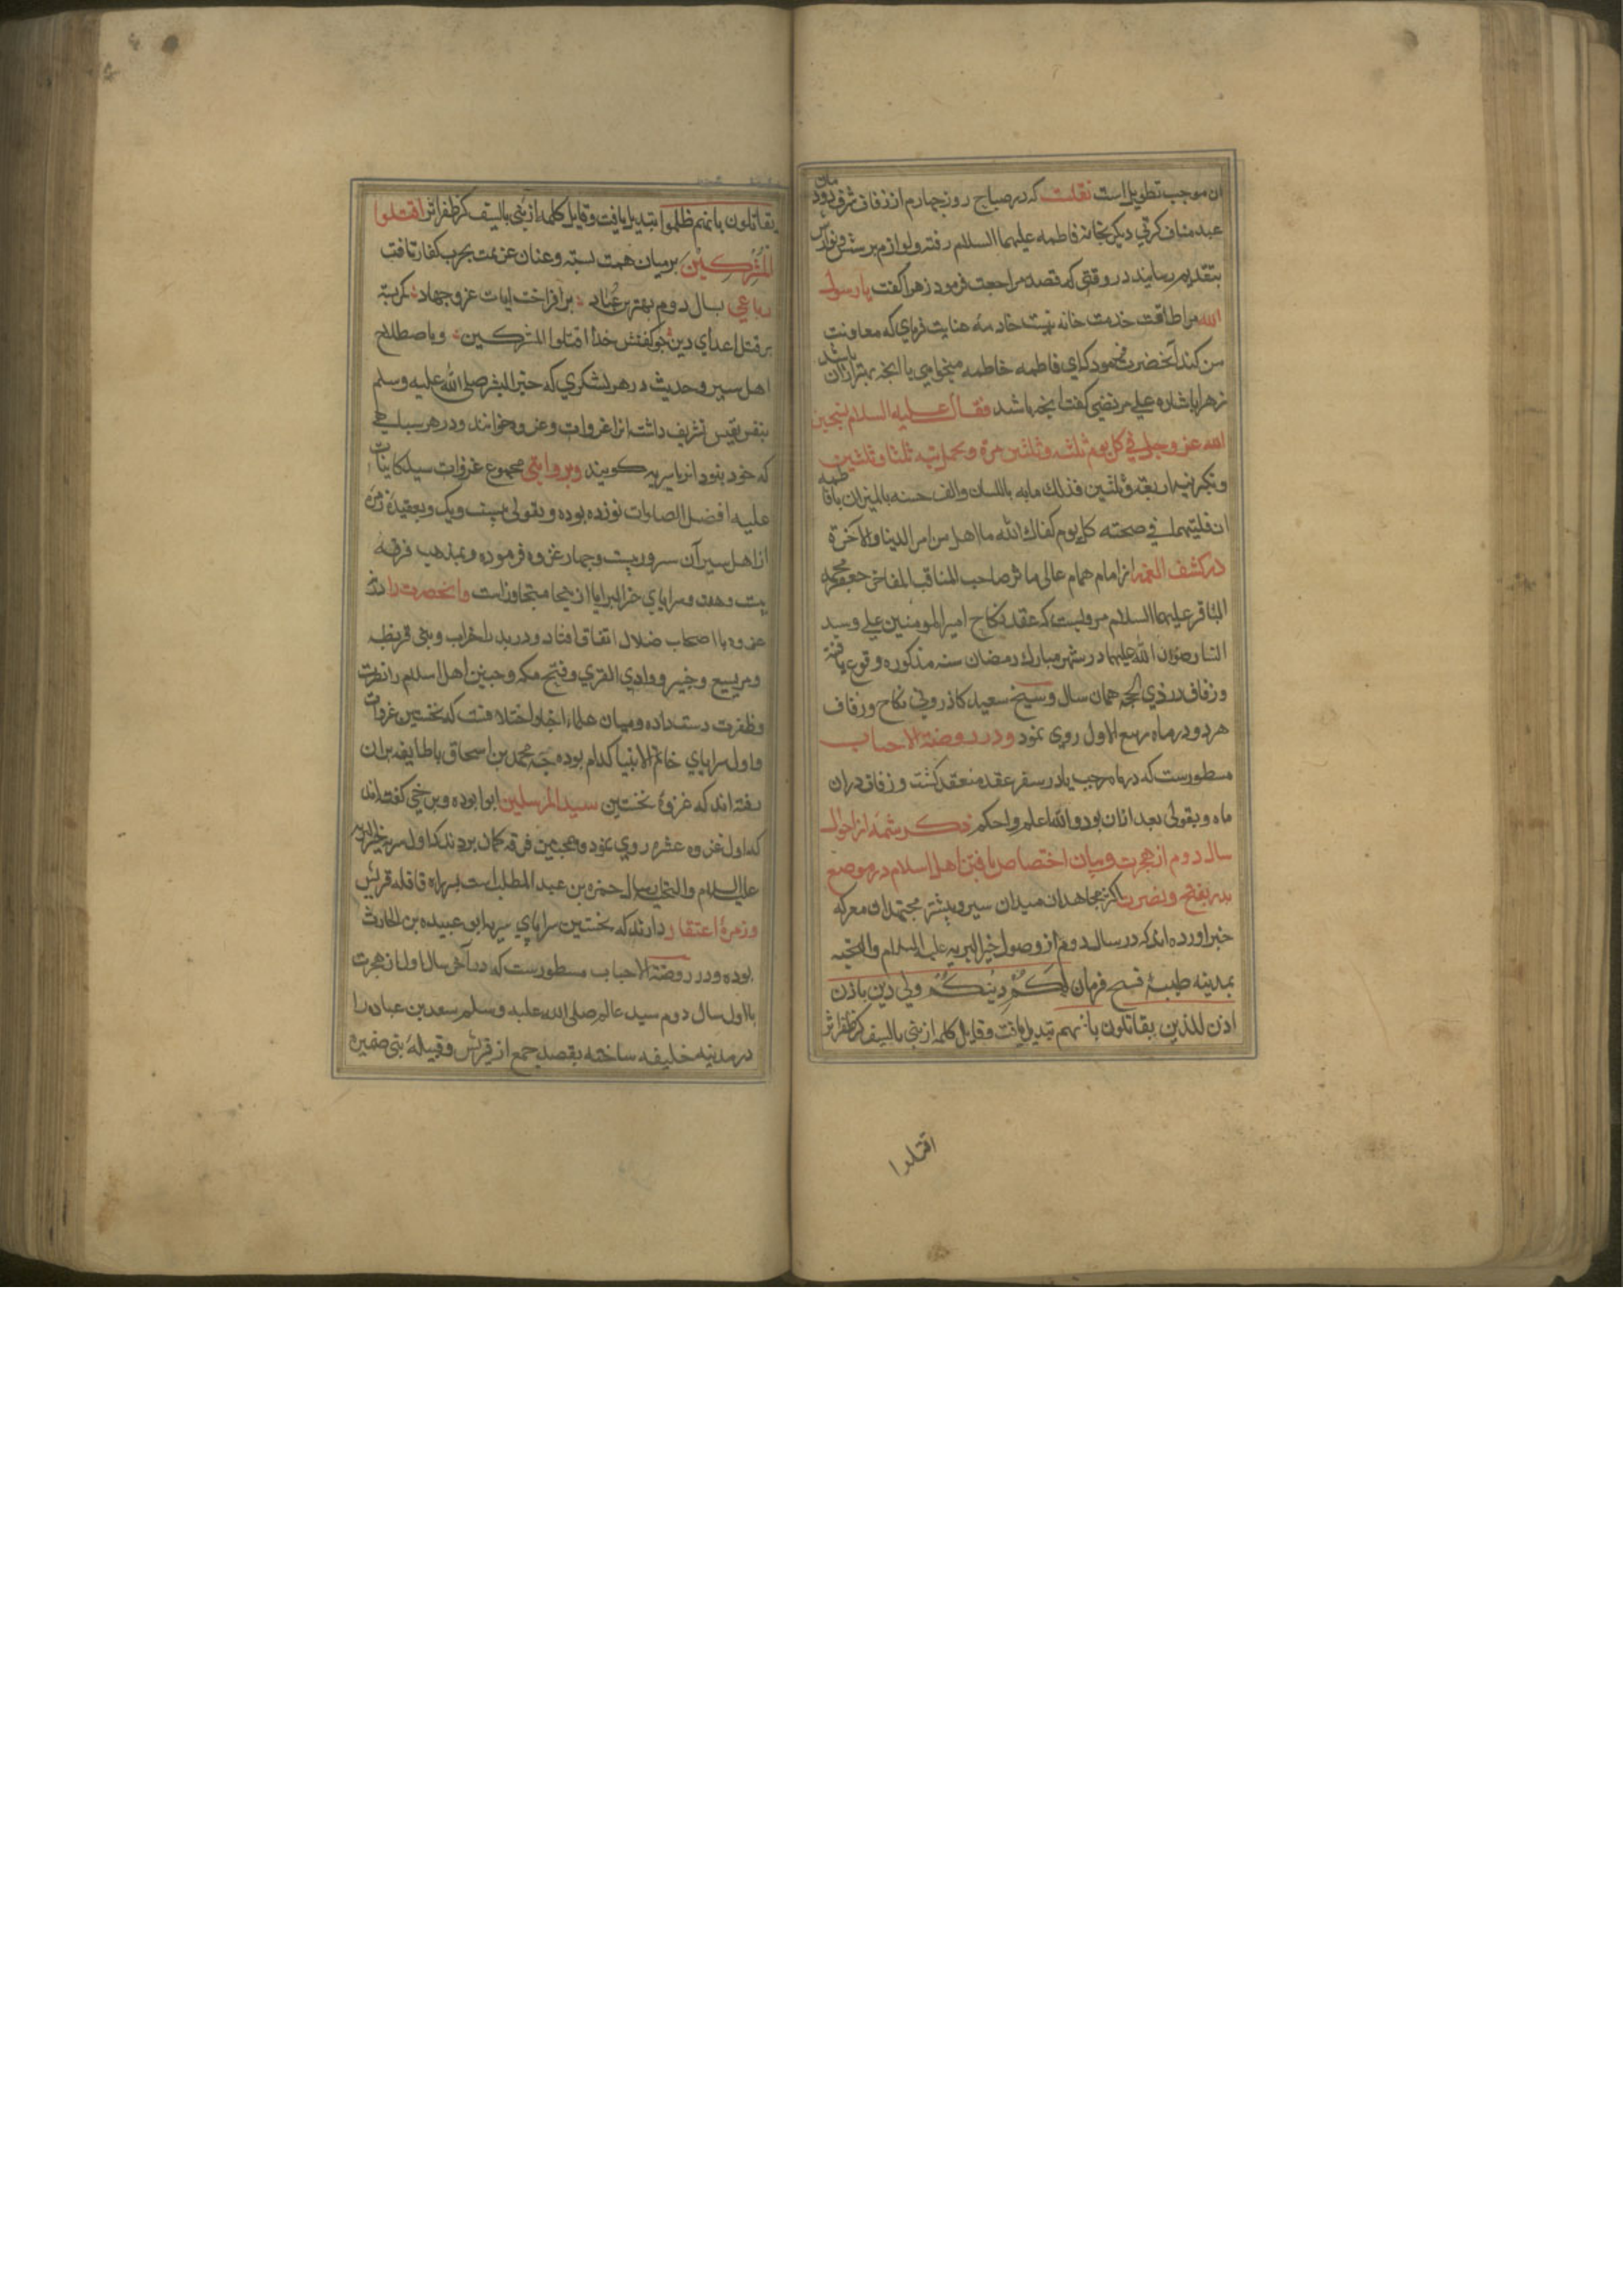 ان موجب تطویل است نقلست که در صباح روز چهارم از زفاف شرف دودمان
عبد مناف کرتی دیکر بخانه فاطمه علیهما السلام رفته ولوازم پرسش ونوازش
بتقدیم رسانید در وقتی که قصد مراجعت فرمود زهرا کفت یا رسول
الله مرا طاقت خدمت خانه نیست خادمه عنایت فرمای که معاونت
من کند آنحضرت فرمود که ای فاطمه خادمه میخواهی یا آنچه بهتر ازان باشد
زهرا باشاره علی مرتضی کفت آنچه باشد فقال علیه السلام تسبحین
الله عز وجل فی کل یوم ثلثه وثلثین مرة وتحمدینه ثلثا وثلثین
وتکبرینه اربعة وثلثین فذلک مایه باللسان والف حسنه بالمیزان یا فاطمه
ان قلتیها فی صبحته کل یوم کفاک الله ما اهل من امر الدنیا والآخرة
در کشف الغمه از امام همام عالی ماثر صاحب المناقب المفاخر جعفر بن محمد
الباقر علیهما السلام مرویست که عقد نکاح امیر المومنین علی وسید
النسا رضوان الله علیهما در شهر مبارک رمضان سنه مذکوره وقوع یافته
وزفاف در ذی الحجه همان سال وشیخ سعید کاذرونی نکاح وزفاف
هر دو در ماه ربیع الاول روی نمود ودر روضة الاحباب
مسطورست که در ماه رجب یا در سفر عقد منعقد کشت وزفاف دران
ماه وبقولی بعد ازان بود والله اعلم واحکم ذکر شمه از احوال
سال دوم از هجرت وبیان اختصاص یافتن اهل اسلام در موضع
بدر بفتح ونصرت اکثر مجاهدان میدان سیر وبیشتر مجتهدان معرکه
خبر اورده اند که در سال دوم از وصول خیر البریه علیه السلام والتحیه
بمدینه طیبه فسح فرمان لکم دینکم ولی دین باذن
اذن للذین یقاتلون بانهم تبدیل یافت وقایل کلمه از بنی بالسیف کز ظفر اثر
اقتلوا
یقاتلون بانهم ظلموا تبدیل یافت وقایل کلمه از بنی بالسیف کز ظفر اثر اقتلوا
المشرکین بر میان همت بسته وعنان عزیمت بحرب کفار تافت
رباعی بسال دوم بهتر بر افراخت رایات عز وجهاد کمر بسته
بر قتل اعدای دین چو کفتش خدا اقتلوا المشرکین وباصطلاح
اهل سیر وحدیث در هر لشکری که خیر البشر صلی الله علیه وسلم
بنفس نفیس تشریف داشت انرا غزوات وغزوه خوانند ودر هر سپاهی
که خود نبود انرا سریه کویند وبروایتی مجموع غزوات سید کاینات
علیه افضل الصلوات نوزده بوده وبقولی بیست ویک وبعقیده زمره
از اهل سیر آن سرور بیست وچهار غزوه فرموده وبمذهب فرقه
بیست وهفت وسرایای خیر البرایا از پنجاه متجاوزاست وانحضرت را در نه
غزوه با اصحاب ضلال اتفاق افتاد ودر بدر واحزاب وبنی قریظه
ومریسیع وخیبر ووادی القری وفتح مکه وحنین اهل اسلام را نصرت
وظفرت دست داده ومیان علماء اخبار اختلافست که نخستین غزوات
واول سرایای خاتم الانبیا کدام بوده چه محمد بن اسحاق با طایفه بران
رفته اند که غزوه نخستین سید المرسلین ابوا بوده وبرخی کفته اند
که اول غزوه عشیره روی نمود وهمچنین فرقه کمان بردند که اول سریه خیر البریه
علیه السلام والتحیه ارسال حمزه بن عبد المطلب است بسر راه قافله قریش
وزمرهٔ اعتقاد دارند که نخستین سرایای سریه ابو عبیده بن الحارث
بوده ودر روضة الاحباب مسطورست که در آخر سال اول از هجرت
یا اول سال دوم سید عالم صلی الله علیه وسلم سعد بن عباده را
در مدینه خلیفه ساخته بقصد جمع از قریش وقبیلهٔ بنی ضمیره